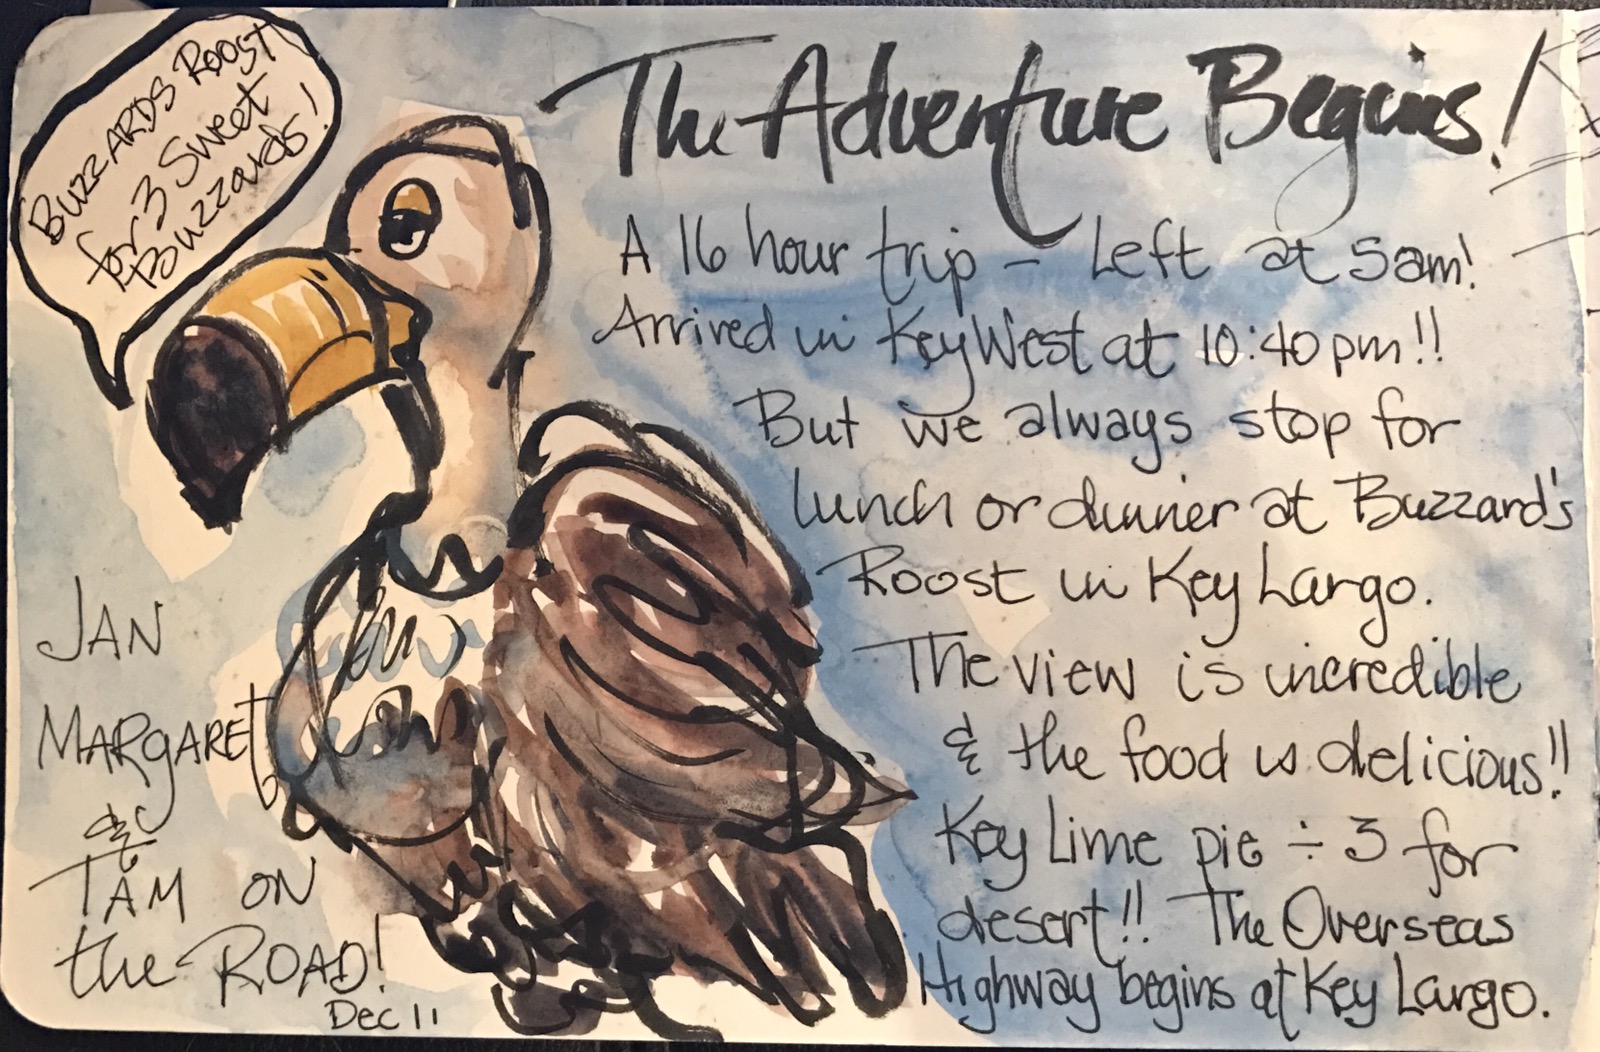 BUZZARDS ROOST
for 3 Sweet
Buzzards!
The Adventure Begins!
A 16 hour trip - Left at 5am!
Arrived in Key West at 10:40pm!!
But we always stop for
lunch or dinner at Buzzard's
Roost in Key Largo.
The view is incredible
& the food is delicious!!
Key Lime pie ÷ 3 for
desert!! The Overseas
Highway begins at Key Largo.
JAN
MARGARET
&
TAM ON
the ROAD!
Dec 11